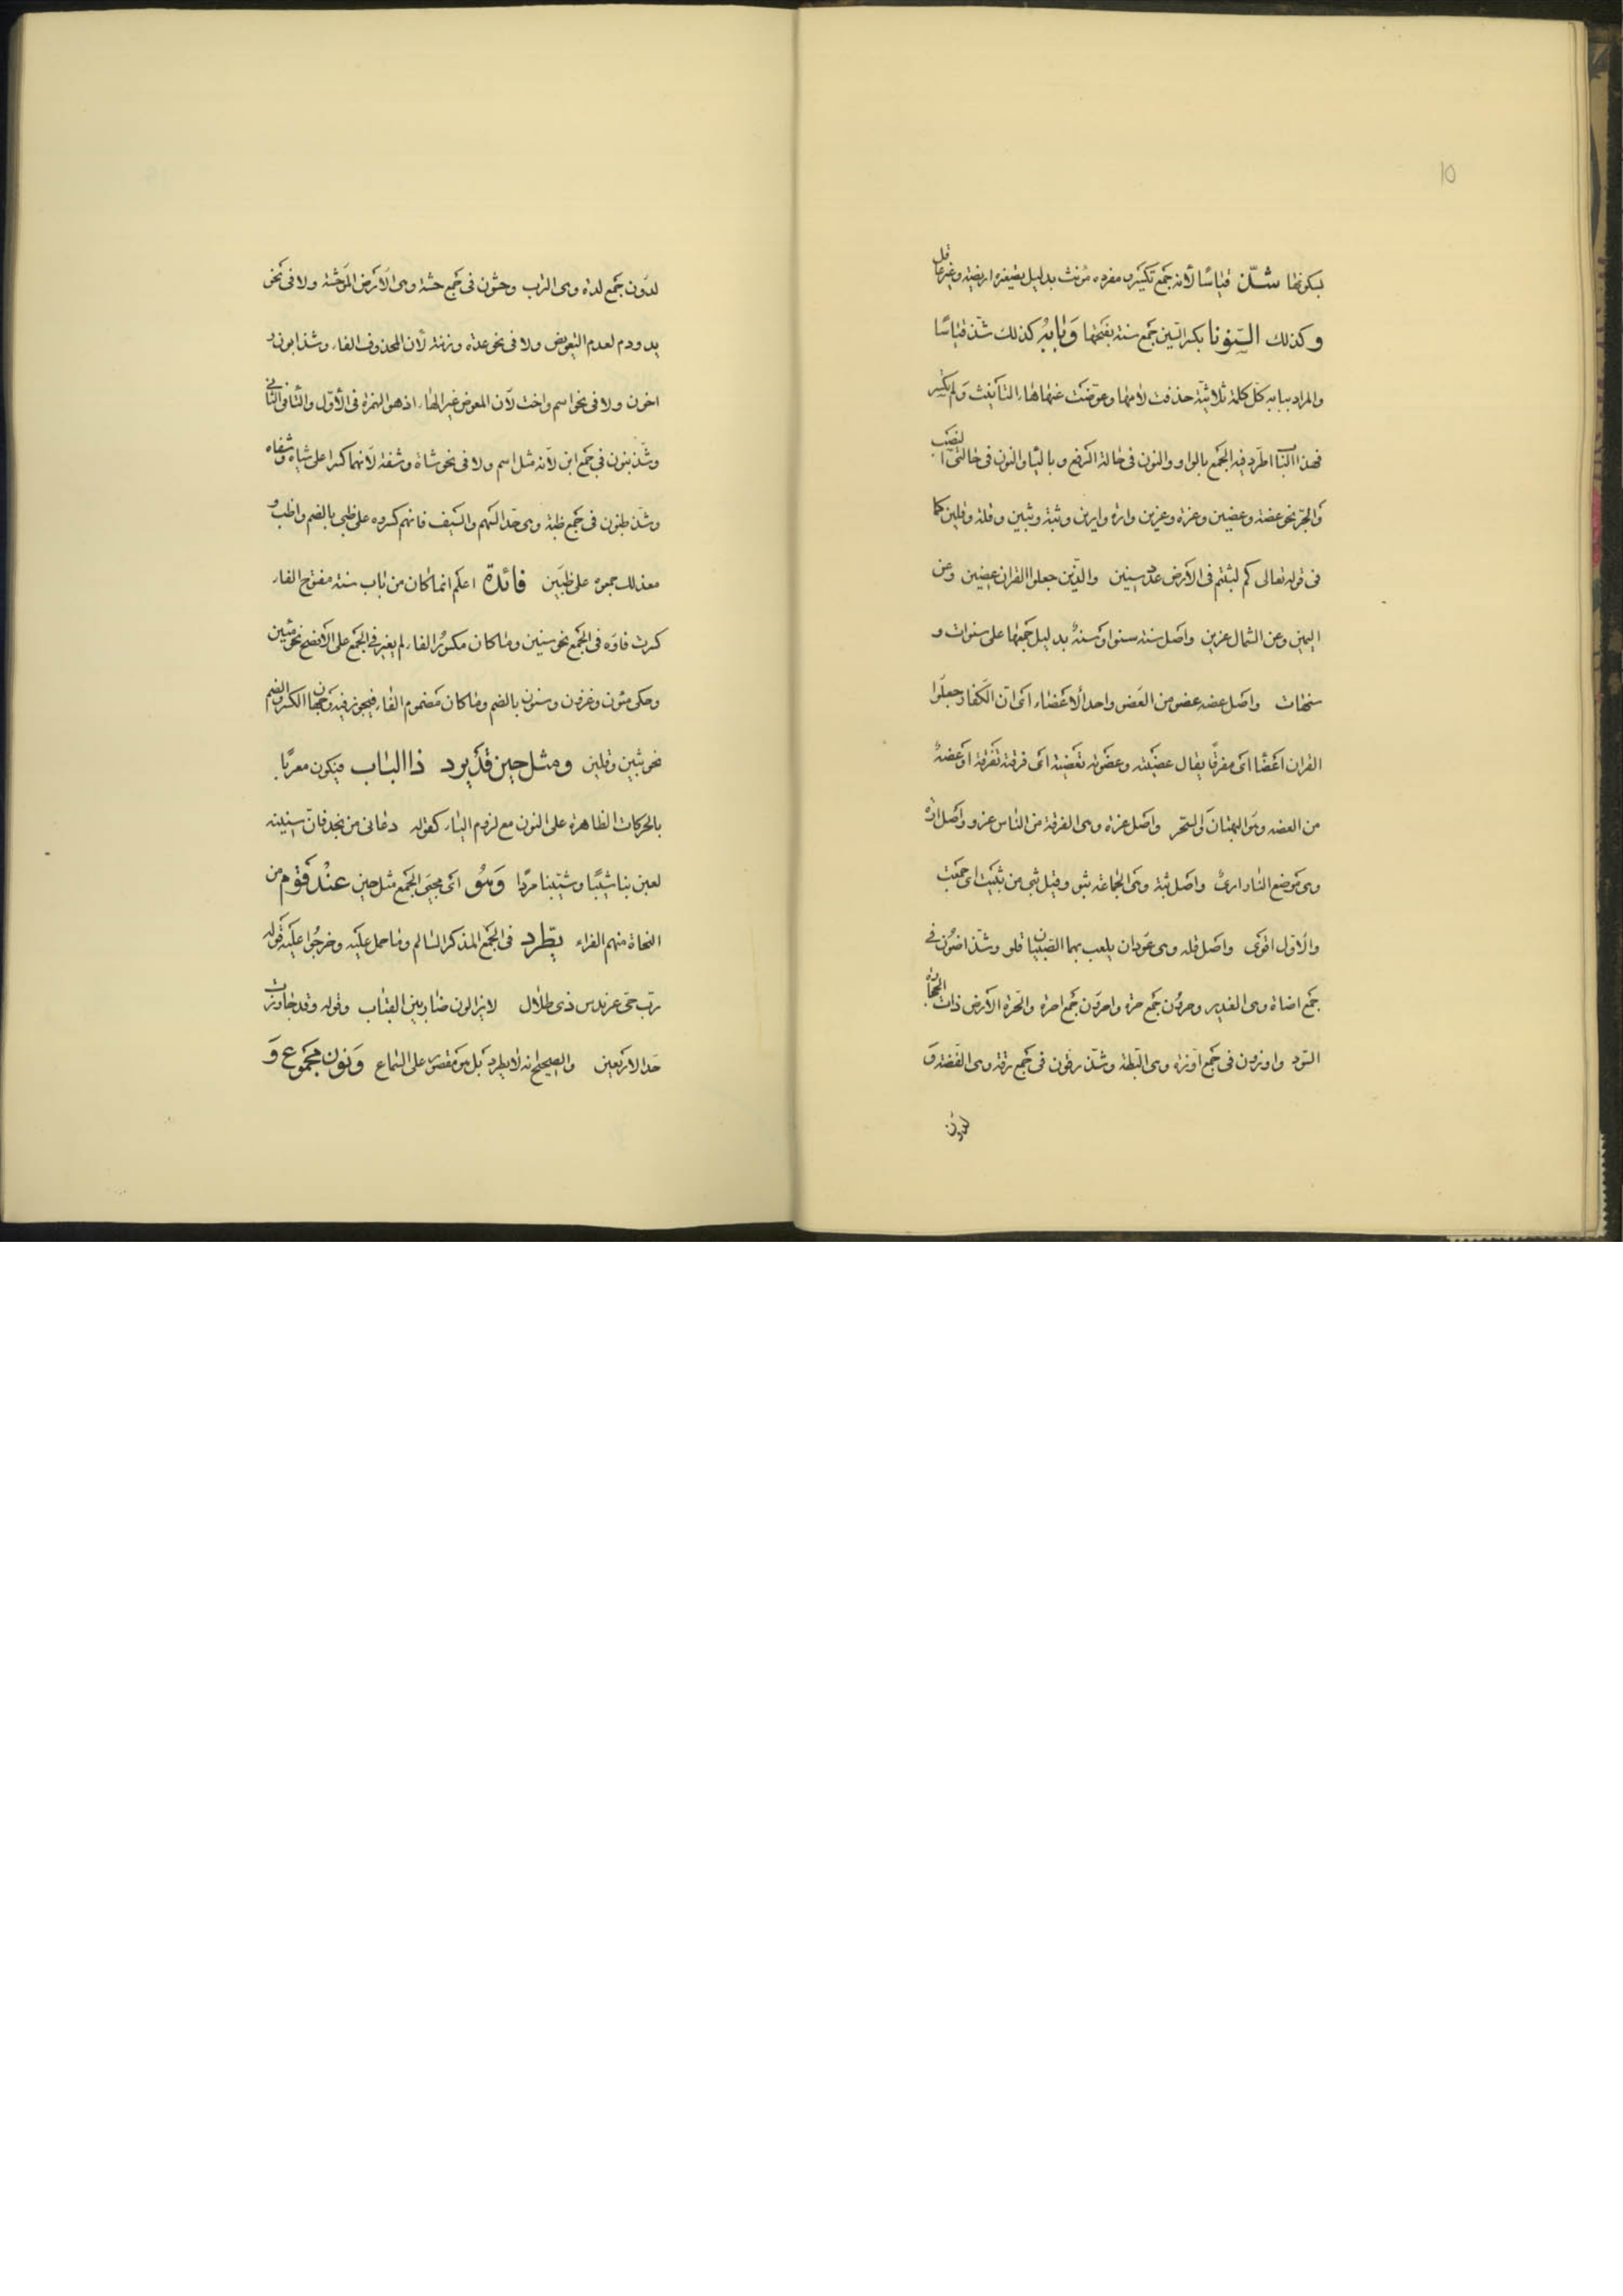 10
بسكونها شذ قياسًا لأنه جمع تكسير ومفرده مؤنث بدليل تصغيره اريضة وغير عاقل
وكذلك السنونا بكسر السين جمع سنة بفتحها وبابه كذلك شذ قياسًا
والمراد ببابه كل كلمة ثلاثية حذفت لامها وعوضت عنها هاء التأنيث ولم تكسر
فهذا الباب اطرد فيه الجمع بالواو والنون في حالة الرفع وبالياء والنون في حالتي النصب
والجر نحو عضة وعضين وعزة وعزين وارة وارين وثبة وثبين وقلة وقلين كما
في قوله تعالى كم لبثتم في الأرض عدد سنين والذين جعلوا القران عضين وعن
اليمين وعن الشمال عزين واصل سنة سنو او سنه بدليل جمعها على سنوات و
سنهات واصل عضه عضو من العضو واحد الأعضاء اى ان الكفار جعلوا
القران اعضاء اى مفرقًا يقال عضيته وعضوته تعضية اى فرقته تفرقة او عضه
من العضه وهو البهتان والسحر واصل عزة وهى الفرقة من الناس عزو واصل ارة
وهى موضع النار ارى واصل ثبة وهى الجماعة ثبو وقيل ثبى من ثبيت اى جمعت
والأول اقوى واصل قله وهى عودان يلعب بهما الصبيان قلو وشذ اضون في
جمع اضاة وهى الغدير وحرون جمع حرة واحرون جمع احرة والحرة الأرض ذات الحجارة
السود واوزون في جمع اوزة وهى البطة وشذ رقون في جمع رقة وهى الفضة و
لدون
لدون جمع لدة وهى الترب وحشون في جمع حشة وهى الأرض الموحشة ولا في نحو
يد ودم لعدم التعويض ولا في نحو عدة وزنة لأن المحذوف الفاء وشذ ابون و
اخون ولا في نحو اسم واخت لأن المعوض غير الهاء اذ هو الهمزة في الأول والتاء في الثاني
وشذ بنون في جمع ابن لأنه مثل اسم ولا في نحو شاة وشفة لأنهما كسرا على شياه وشفاه
وشذ ظبون في جمع ظبة وهى حد السهم والسيف فانهم كسروه على ظبى بالضم واظب و
مع ذلك جمعوه على ظبين فائدة اعلم انما كان من باب سنة مفتوح الفاء
كسرت فاؤه في الجمع نحو سنين وما كان مكسور الفاء لم يغير في الجمع على الأفصح نحو مئين
وحكى مئون وعزون وسنون بالضم وما كان مضموم الفاء فيجوز فيه وجهان الكسر والضم
نحو ثبين وقلين ومثل حين قد يرد ذا الباب فيكون معربًا
بالحركات الظاهرة على النون مع لزوم الياء كقوله دعاني من نجد فان سنينه
لعبن بنا شيبًا وشيبننا مردًا وهو اى مجئ الجمع مثل حين عند قوم من
النحاة منهم الفراء يطرد في الجمع المذكر السالم وما حمل عليه وخرجوا عليه قوله
رب حى عرندس ذى طلال لا يزالون ضاربين القباب وقوله وقد جاوزت
حد الأربعين والصحيح انه لا يطرد بل هو مقصور على السماع ونون مجموع و